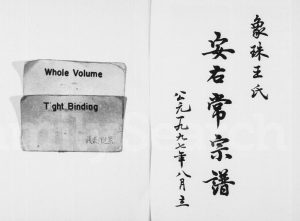 Whole Volume
Tight Binding
象珠王氏
安右常宗譜
公元一九九七年八月立